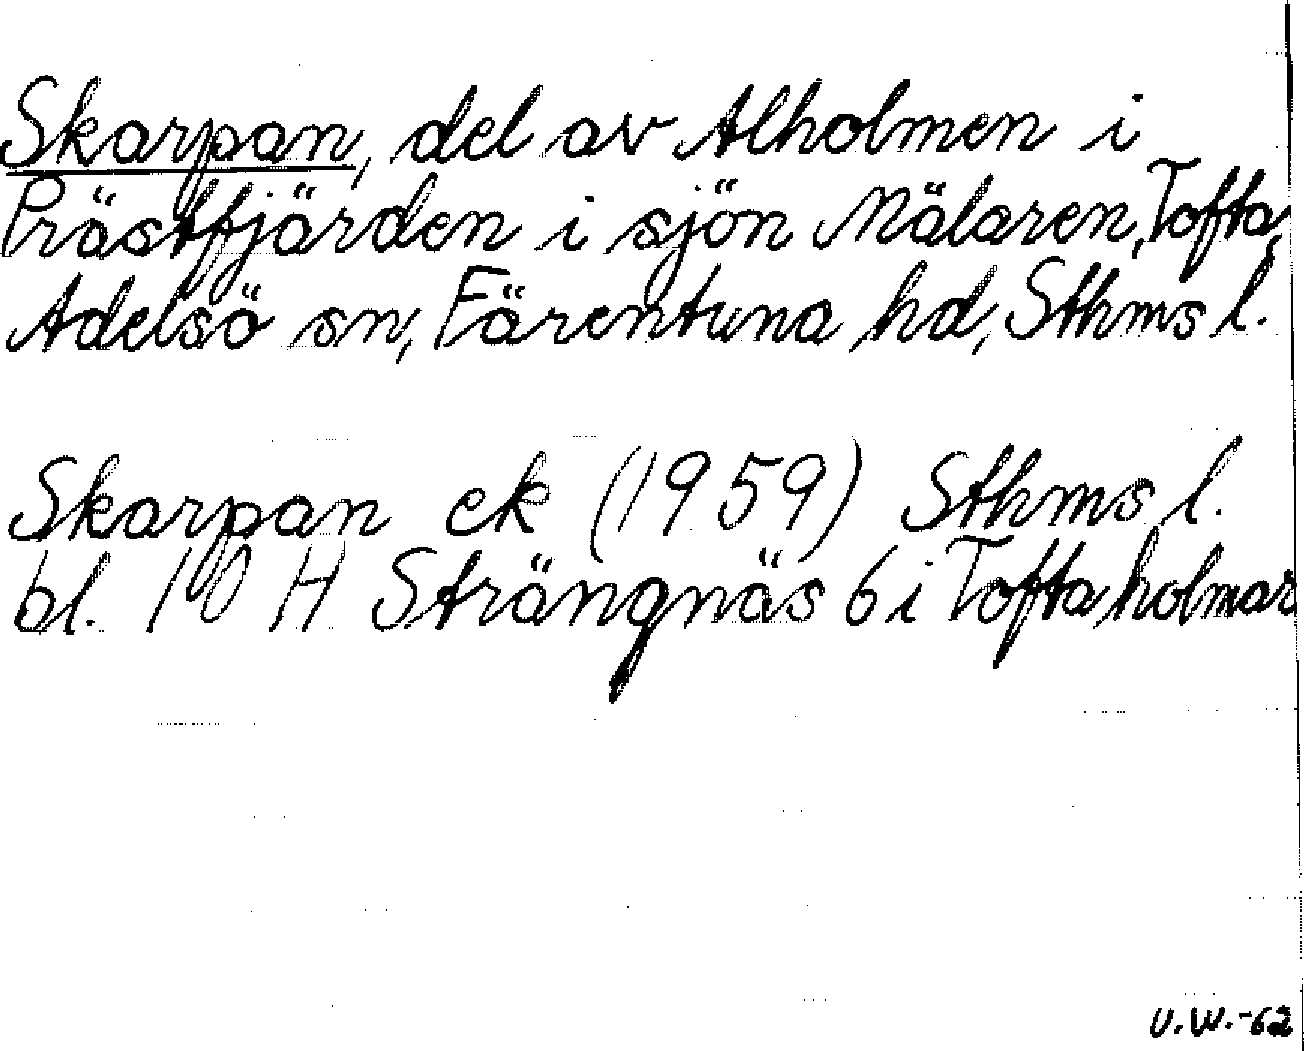 Skarpan, del av Alholmen i
Prästfjärden i sjön Mälaren, Tofta,
Adelsö sn, Färentuna hd, Sthms l.
Skarpan ek (1959) Sthms l.
bl. 10 H Strängnäs 6 i Tofta holmar
U.W.-62